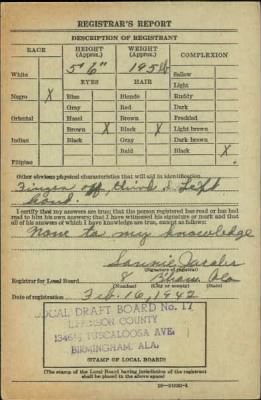 REGISTRAR'S REPORT
DESCRIPTION OF REGISTRANT
RACE HEIGHT (Approx.) WEIGHT (Approx.) COMPLEXION
5' 6" 195 lb
White EYES HAIR Sallow
Light
Negro X Blue Blonde Ruddy
Gray Red Dark
Oriental Hazel Brown Freckled
Brown X Black X Light brown
Indian Black Gray Dark brown
Bald Black X
Filipino
Other obvious physical characteristics that will aid in identification
Finger off, third, Left
hand.
I certify that my answers are true; that the person registered has read or has had
read to him his own answers; that I have witnessed his signature or mark and that
all of his answers of which I have knowledge are true, except as follows:
None to my knowledge
Jacobs
(Signature of registrar)
Registrar for Local Board 8 Bham Ala
(Number) (City or county) (State)
Date of registration Feb. 16, 1942
LOCAL DRAFT BOARD No. 11
JEFFERSON COUNTY
1346½ TUSCALOOSA AVE.
BIRMINGHAM, ALA.
(STAMP OF LOCAL BOARD)
(The stamp of the Local Board having jurisdiction of the registrant
shall be placed in the above space)